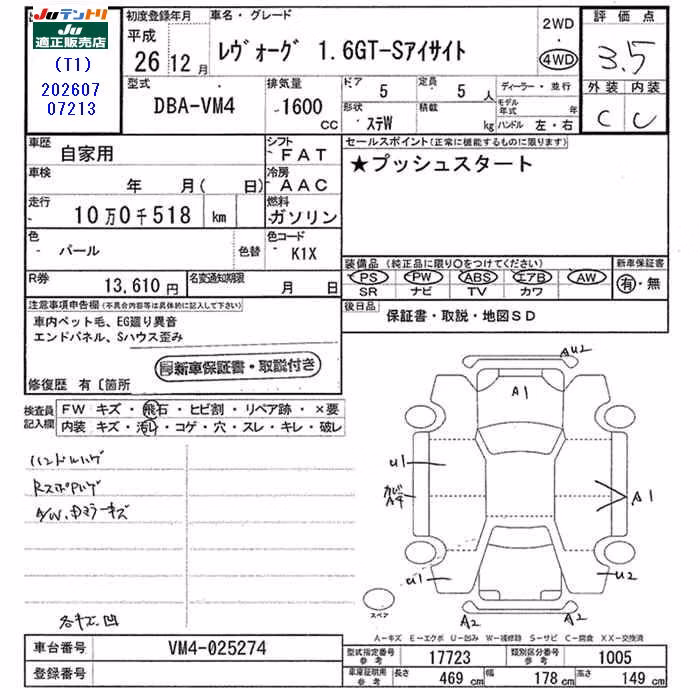 JUテントリ
JU
適正販売店
(T1)
202607
07213
初度登録年月
車名・グレード
平成
26 12 月
レヴォーグ 1.6GT-Sアイサイト
2WD
4WD
評価点
3.5
外装 内装
C C
型式
DBA-VM4
排気量
1600
CC
ドア
5
定員
5 人
形状
ステW
積載
kg
ディーラー・並行
モデル年式 年
ハンドル 左・右
車歴
自家用
シフト
FAT
車検
年 月( 日)
冷房
AAC
走行
10万0千518 km
燃料
ガソリン
色
パール
色替
色コード
K1X
R券
13,610 円
名変通知期限
月 日
セールスポイント(正常に機能するものに限ります)
★プッシュスタート
装備品(純正品に限り○をつけてください)
PS PW ABS エアB AW
SR ナビ TV カワ
新車保証書
有・無
後日品
保証書・取説・地図SD
注意事項申告欄(不具合内容等は具体的に記入して下さい)
車内ペット毛、EG廻り異音
エンドパネル、Sハウス歪み
新車保証書・取説付き
修復歴 有〔箇所
検査員記入欄
FW キズ・飛石・ヒビ割・リペア跡・×要
内装 キズ・汚レ・コゲ・穴・スレ・キレ・破レ
ハンドルハゲ
A/W、キズ
各キズ凹
AU2
A1
U1
カビ
A4
A1
U1
U2
スペア
A2
A2
A-キズ E-エクボ U-凹み W-補修跡 S-サビ C-腐食 XX-交換済
車台番号
VM4-025274
登録番号
型式指定番号 参考
17723
類別区分番号 参考
1005
車庫証明用 参考
長さ 469 cm
幅 178 cm
高さ 149 cm